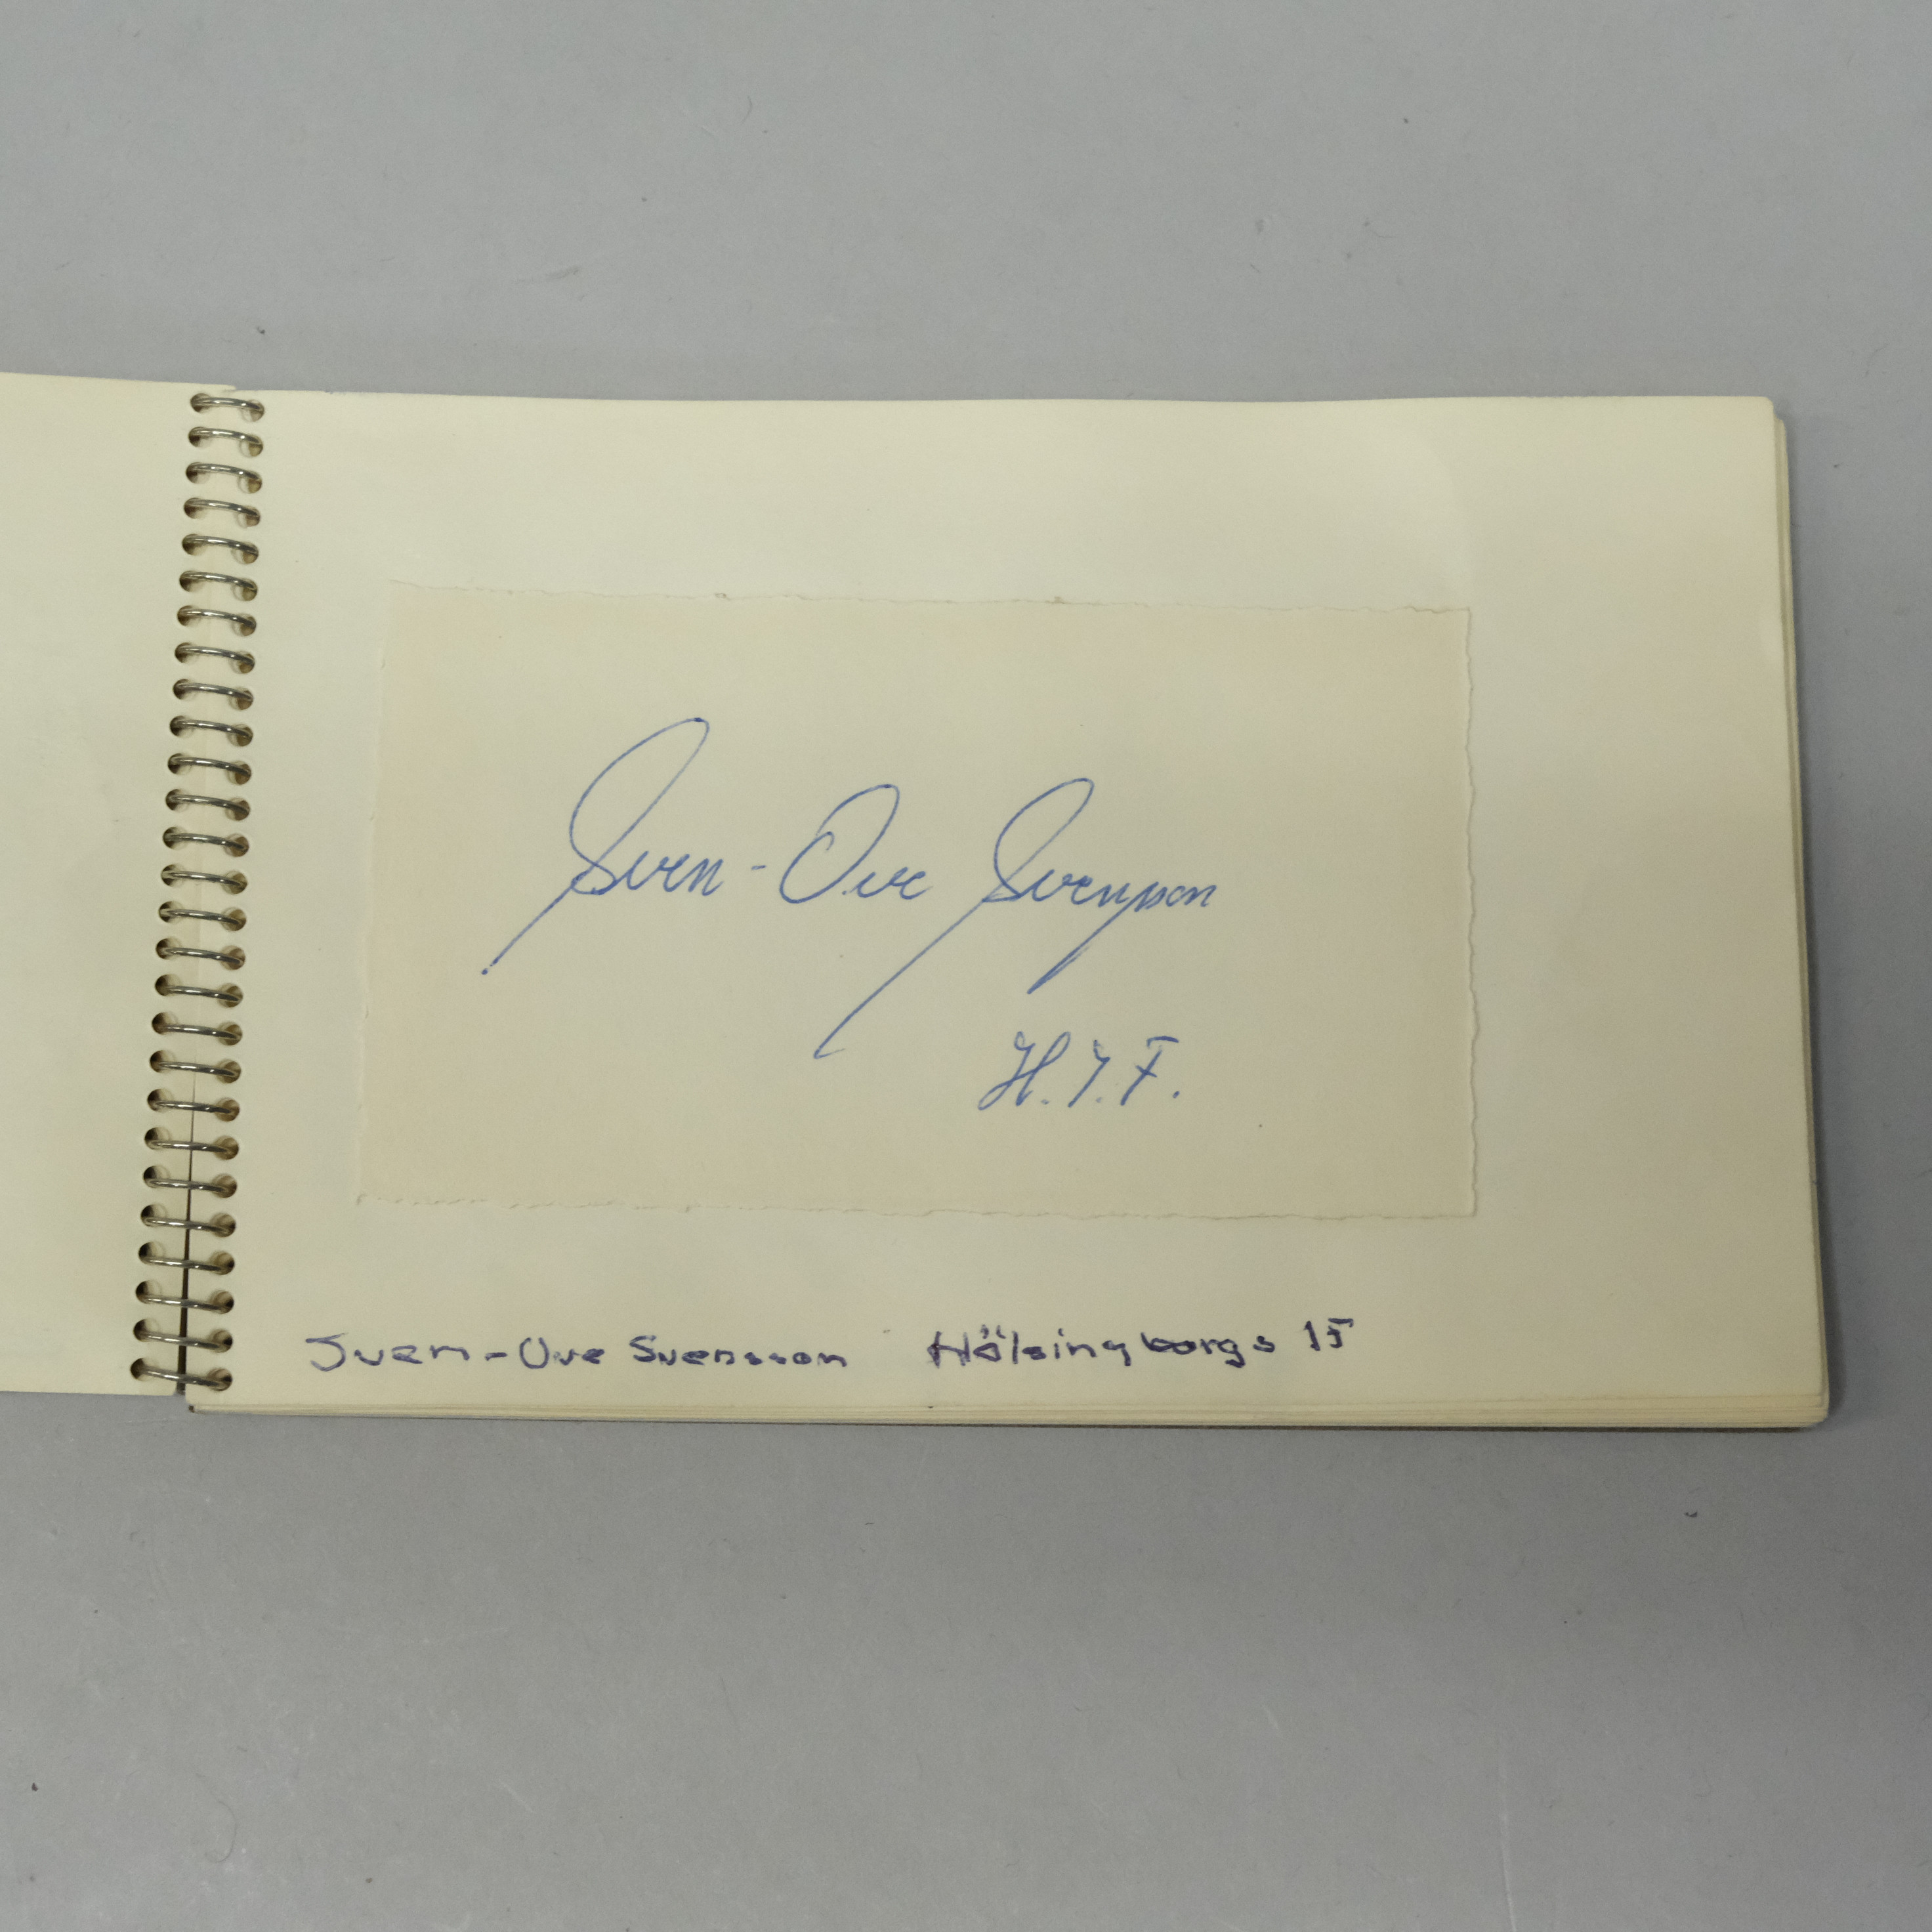 Sven-Ove Svensson
H.I.F.
Sven-Ove Svensson Hälsingborgs IF